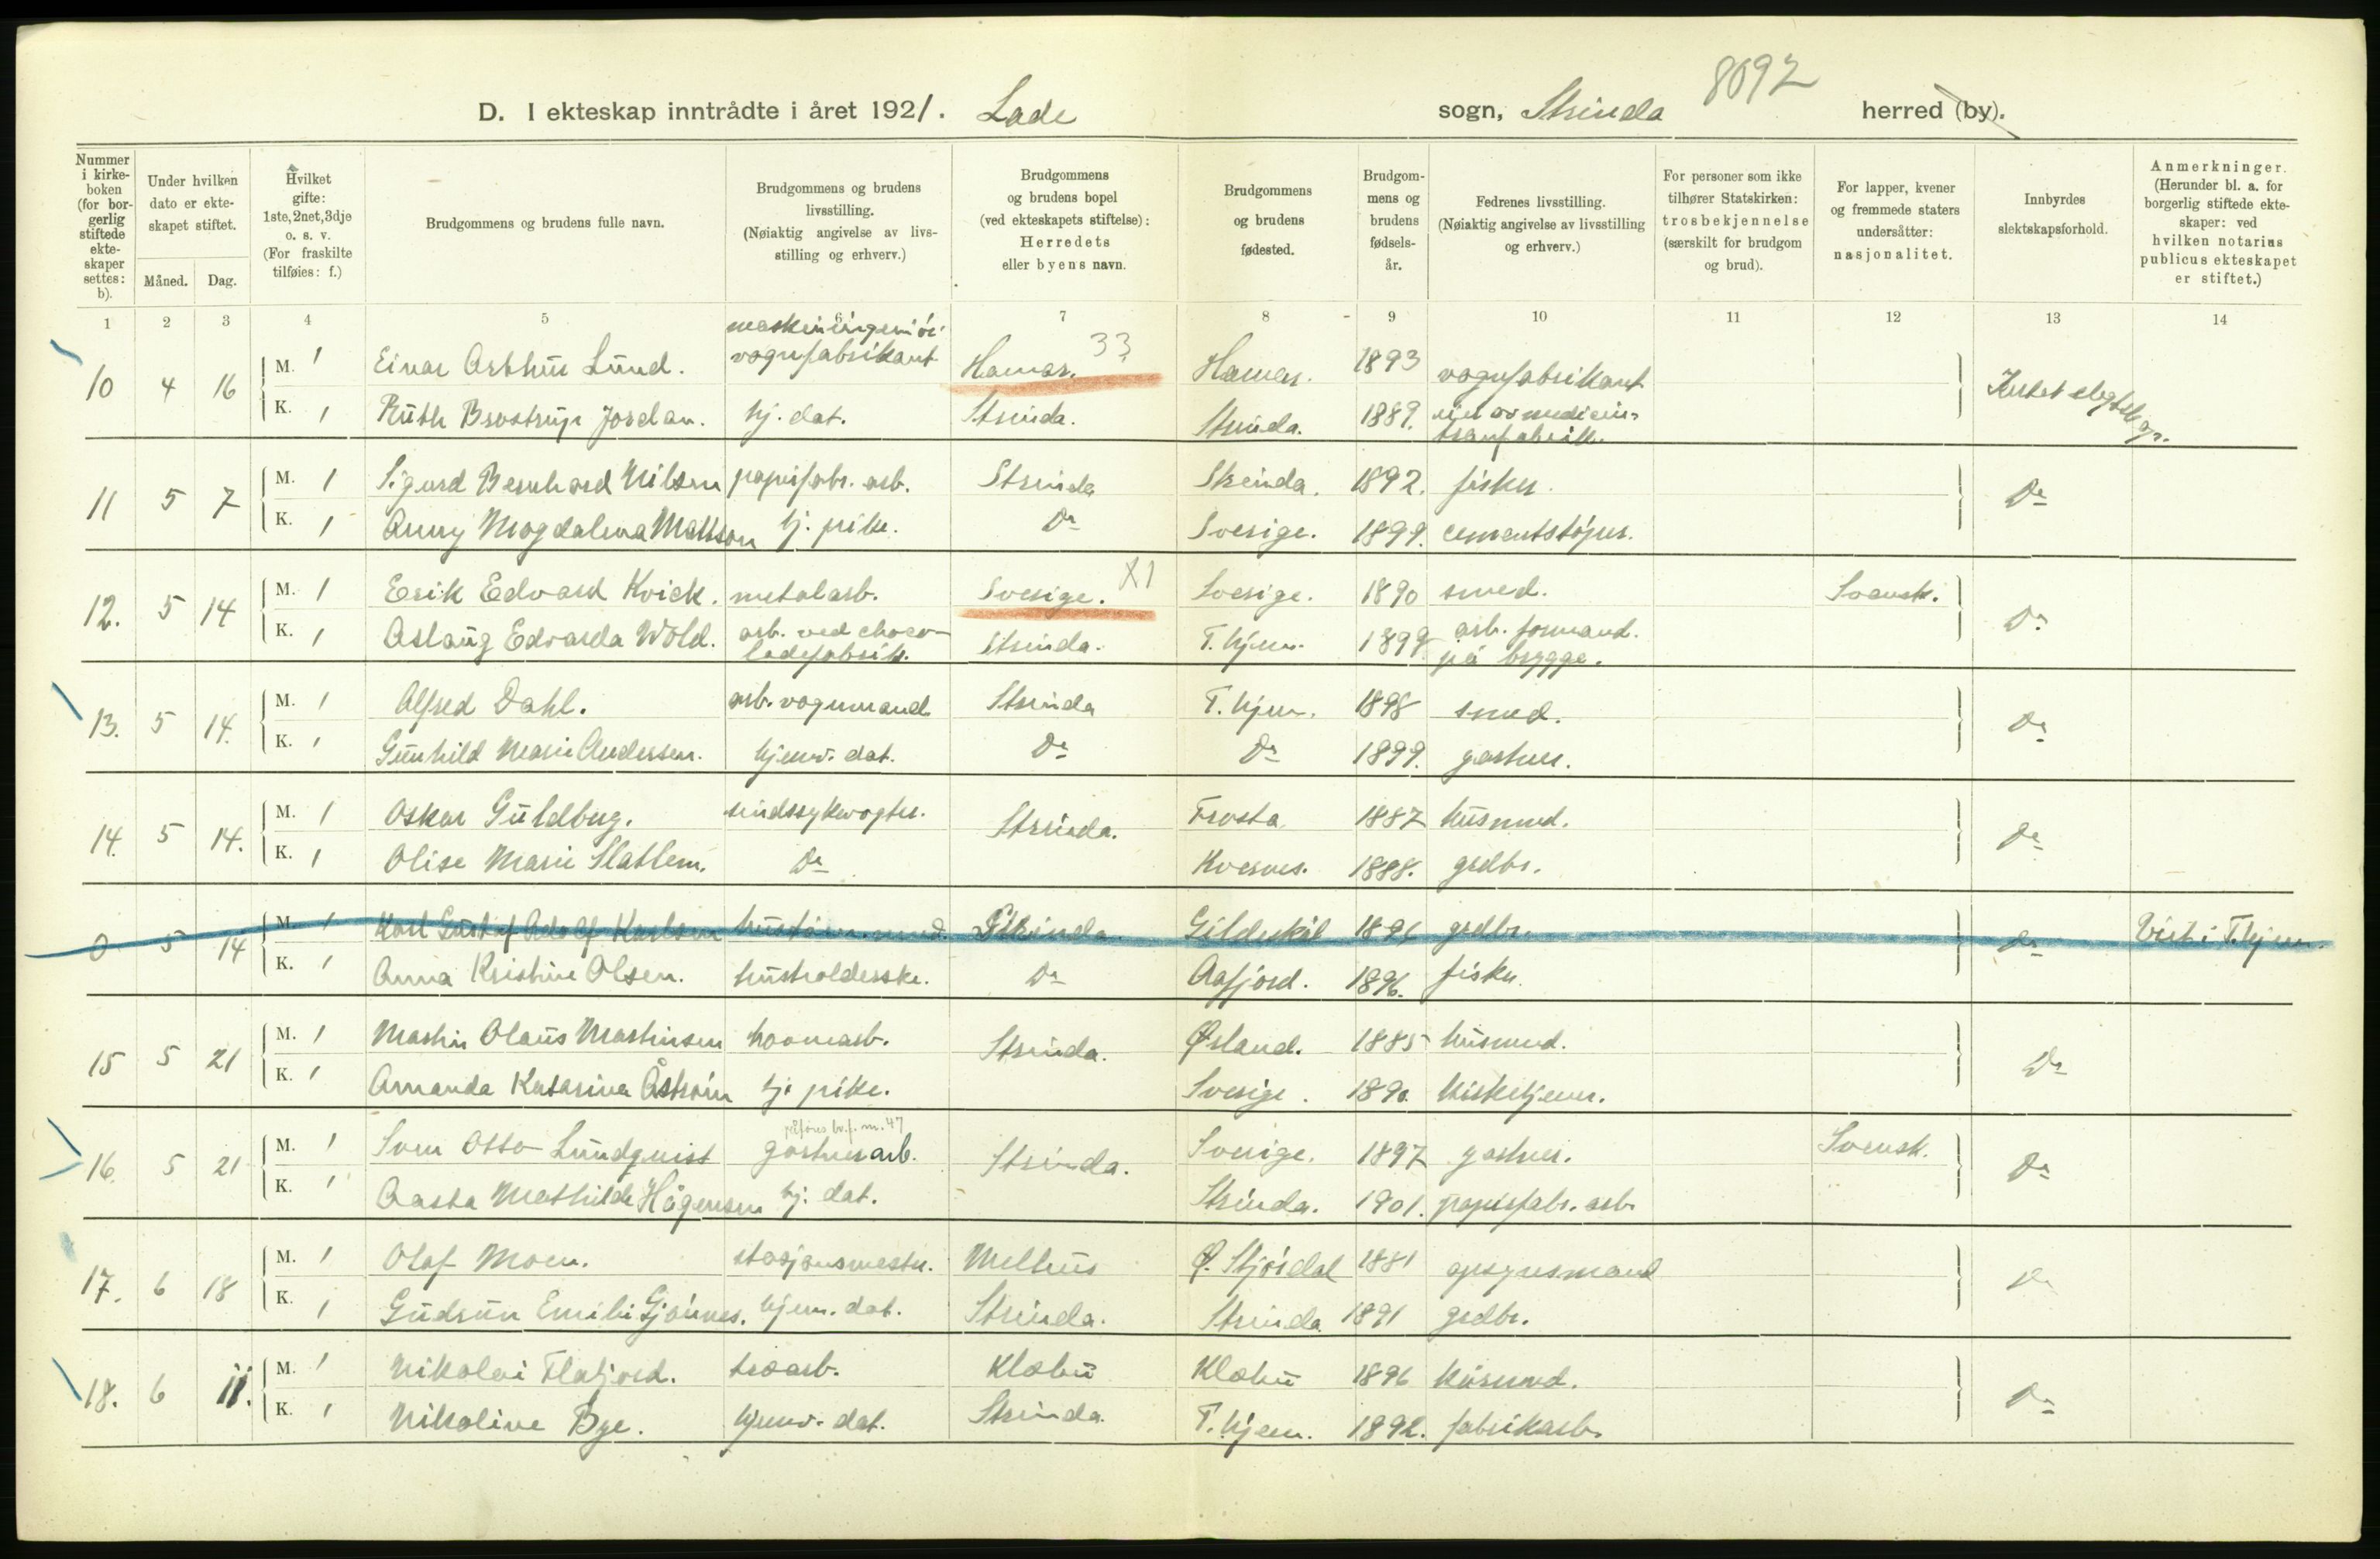 8092
D. I ekteskap inntrådte i året 1921. Lade sogn, Strinda herred (by).
Nummer i kirkeboken (for borgerlig stiftede ekteskaper settes: b).
Under hvilken dato er ekteskapet stiftet.
Måned. Dag.
Hvilket gifte: 1ste, 2net, 3dje o. s. v. (For fraskilte tilføies: f.)
Brudgommens og brudens fulle navn.
Brudgommens og brudens livsstilling. (Nøiaktig angivelse av livsstilling og erhverv.)
Brudgommens og brudens bopel (ved ekteskapets stiftelse): Herredets eller byens navn.
Brudgommens og brudens fødested.
Brudgommens og brudens fødselsår.
Fedrenes livsstilling. (Nøiaktig angivelse av livsstilling og erhverv.)
For personer som ikke tilhører Statskirken: trosbekjennelse (særskilt for brudgom og brud).
For lapper, kvener og fremmede staters undersåtter: nasjonalitet.
Innbyrdes slektskapsforhold.
Anmerkninger. (Herunder bl. a. for borgerlig stiftede ekteskaper: ved hvilken notarius publicus ekteskapet er stiftet.)
1 2 3 4 5 6 7 8 9 10 11 12 13 14
10 4 16 M. 1 Einar Arthur Lund. maskiningeniör vognfabrikant Hamar. 33 Hamar. 1893 vognfabrikant Intet slegtsk
K. 1 Ruth Brostrup Jordan. hj. dat. Strinda. Strinda. 1889. eier av medicin- tranfabrikk.
11 5 7 M. 1 Sigurd Bernhard Nilsen papirfabr. arb. Strinda Strinda. 1892. fisker. Do
K. 1 Anny Magdalena Mattson hj. pike. Do Sverige. 1899. cementstöper.
12. 5 14 M. 1 Erik Edvard Kvick. metalarb. Sverige. X1 Sverige. 1890 smed. Svensk. Do
K. 1 Aslaug Edvarda Wold. arb. ved chocoladefabrik. Strinda. T.hjem. 1899 arb. formand. på brygge.
13. 5 14. M. 1 Alfred Dahl. arb. vognmand Strinda T.hjem. 1898 smed. Do
K. 1 Gunhild Marie Andersen. hjemv. dat. Do Do 1899. gartner.
14. 5 14. M. 1 Oskar Guldberg. sindssykevogter. Strinda. Frosta 1887 husmnd. Do
K. 1 Olise Marie Slattem. Do Kvernes. 1888. grdbr.
0 5 14 M. 1 Karl Gustaf Adolf Karlsen Strinda Gildeskål 1896 grdbr. Do Viet i T.hjem.
K. 1 Anna Kristine Olsen. husholderske. Do Aafjord. 1896. fisker.
15 5 21 M. 1 Martin Olaus Martinsen havnearb. Strinda. Ørland. 1885 husmnd. Do
K. 1 Amanda Katarina Åström hj. pike. Sverige. 1890. kirketjener.
16. 5 21 M. 1 Sven Otto Lundquist gartnerarb. Strinda. Sverige. 1897 gartner. Svensk. Do
K. 1 Aasta Mathilde Hågensen hj. dat. Strinda. 1901. papirfabr. arb.
17. 6 18 M. 1 Olaf Moen. stasjonsmester. Melhus Ø. Stjördal 1881 opsynsmand Do
K. 1 Gudrun Emilie Gjönnes. hjem. dat. Strinda. Strinda 1891 grdbr.
18. 6 11. M. 1 Nikolai Flatjord. træarb. Klæbu Klæbu 1896 husmnd. Do
K. 1 Nikoline Bye. hjemv. dat. Strinda. T.hjem. 1892. fabrikarb.